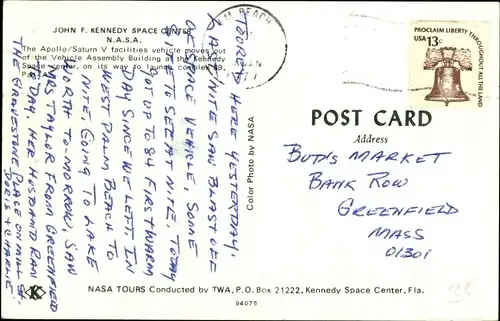 JOHN F. KENNEDY SPACE CENTER
N.A.S.A.
The Apollo/Saturn V facilities vehicle moves out
of the Vehicle Assembly Building at the Kennedy
Space Center, on its way to launch complex 39,
Pad
TOURED HERE YESTERDAY,
LAST NITE SAW BLAST OFF
OF SPACE VEHICLE, SOME
SITE TO SEE AT NITE. TODAY
GOT UP TO 84 FIRST WARM
DAY SINCE WE LEFT. IN
WEST PALM BEACH TO
NITE, GOING TO LAKE
WORTH TO-MORROW, SAW
MRS TAYLOR FROM GREENFIELD
TODAY. HER HUSBAND RAN
THE GRINDSTONE PLACE ON MILL ST.
DORIS + CHARLIE.
Color Photo by NASA
PALM BEACH
PROCLAIM LIBERTY THROUGHOUT ALL THE LAND
USA 13c
POST CARD
Address
BUD'S MARKET
BANK ROW
GREENFIELD
MASS
01301
K
NASA TOURS Conducted by TWA, P.O. Box 21222, Kennedy Space Center, Fla.
94075